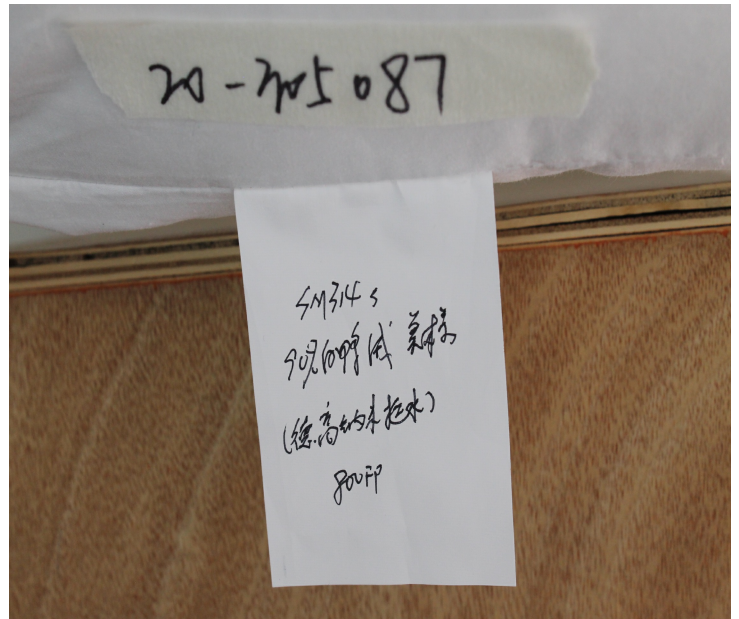 20-205087
SM314 s
90%白鸭绒 美样
(德高纳米拒水)
800FP